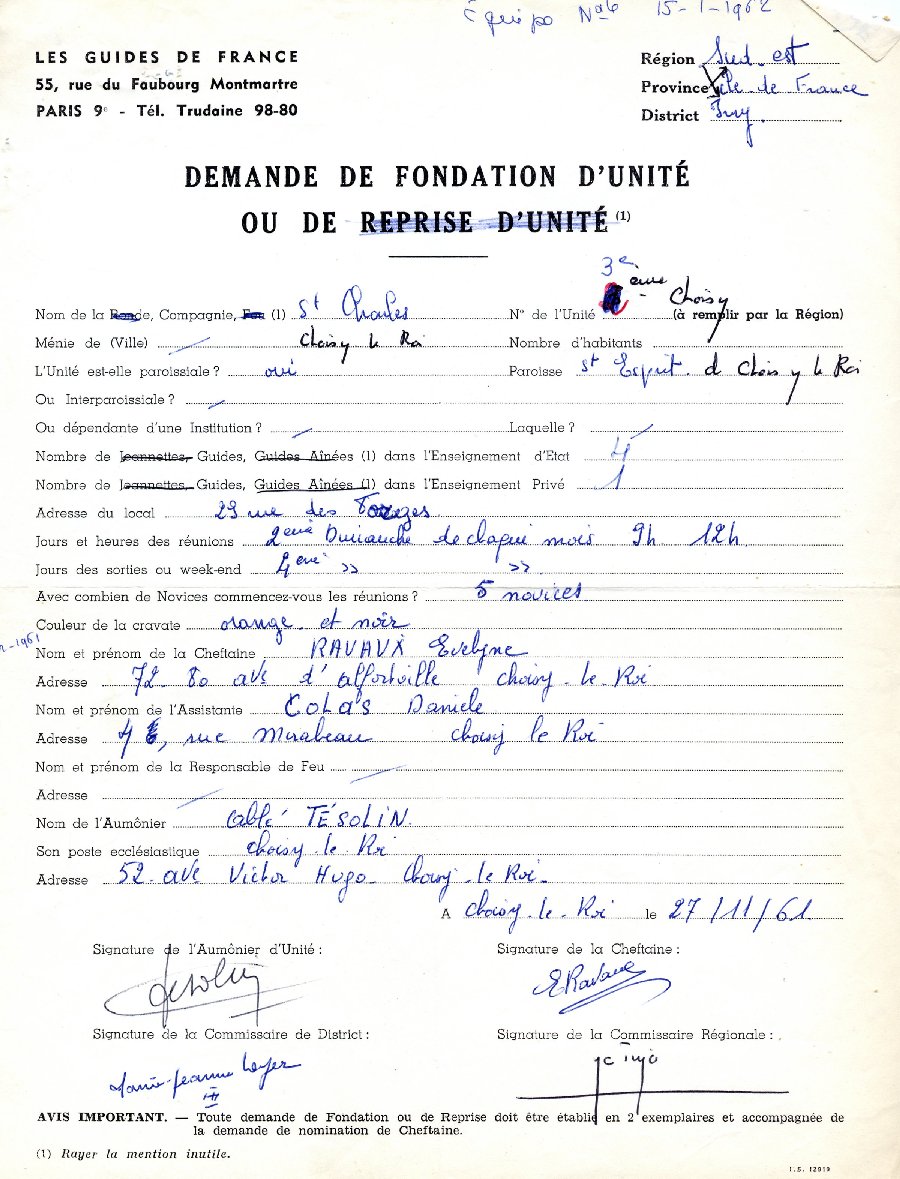 15-1-1962
LES GUIDES DE FRANCE
55, rue du Faubourg Montmartre
PARIS 9e - Tél. Trudaine 98-80
Région Sud-est
Province Ile de France
District Ivry
DEMANDE DE FONDATION D'UNITÉ
OU DE REPRISE D'UNITÉ (1)
3e
ème Choisy
Nom de la Ronde, Compagnie, Feu (1) St Charles N° de l'Unité (à remplir par la Région)
Ménie de (Ville) Choisy le Roi Nombre d'habitants
L'Unité est-elle paroissiale ? oui Paroisse St Esprit d Choisy le Roi
Ou Interparoissiale ?
Ou dépendante d'une Institution ? Laquelle ?
Nombre de Jeannettes, Guides, Guides Aînées (1) dans l'Enseignement d'Etat 4
Nombre de Jeannettes, Guides, Guides Aînées (1) dans l'Enseignement Privé 1
Adresse du local 29 rue des
Jours et heures des réunions 2ème Dimanche de chaque mois 9h 12h
Jours des sorties ou week-end 4ème >> >>
Avec combien de Novices commencez-vous les réunions ? 5 novices
Couleur de la cravate orange et noir
Nom et prénom de la Cheftaine RAVAUX Evelyne
Adresse 72-80 ave d'alfortville choisy-le-Roi
Nom et prénom de l'Assistante COLAS Daniele
Adresse 4, rue Mirabeau choisy le Roi
Nom et prénom de la Responsable de Feu
Adresse
Nom de l'Aumônier abbé TÉSOLIN
Son poste ecclésiastique choisy-le-Roi
Adresse 52 ave Victor Hugo Choisy-le-Roi
A choisy-le-Roi le 27/11/61
Signature de l'Aumônier d'Unité : Signature de la Cheftaine :
Tesolin ERavaux
Signature de la Commissaire de District : Signature de la Commissaire Régionale :
Marie-Jeanne
AVIS IMPORTANT. — Toute demande de Fondation ou de Reprise doit être établie en 2 exemplaires et accompagnée de
la demande de nomination de Cheftaine.
(1) Rayer la mention inutile.
I.S. 12919